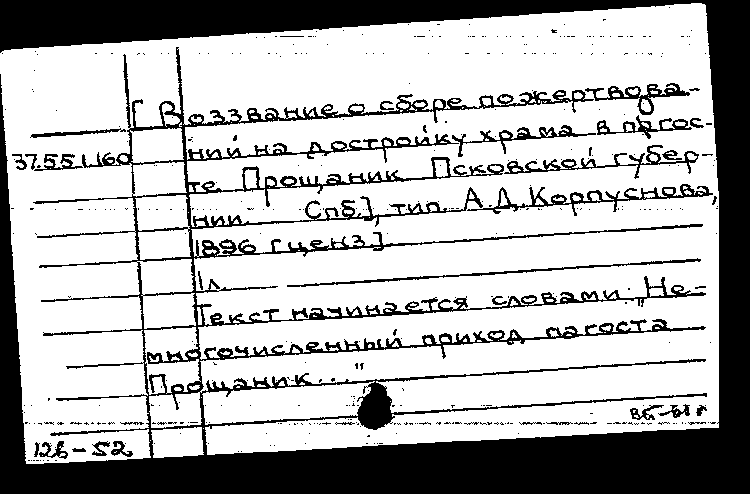 [ Воззвание о сборе пожертвова-
37.55 1.160 ний на достройку храма в погос-
те Прощаник Псковской губер-
нии. Спб.], тип. А.Д. Корпуснова,
1896 [ценз.]
1 л.
Текст начинается словами: „Не-
многочисленный приход пагоста
Прощаник..."
126-52